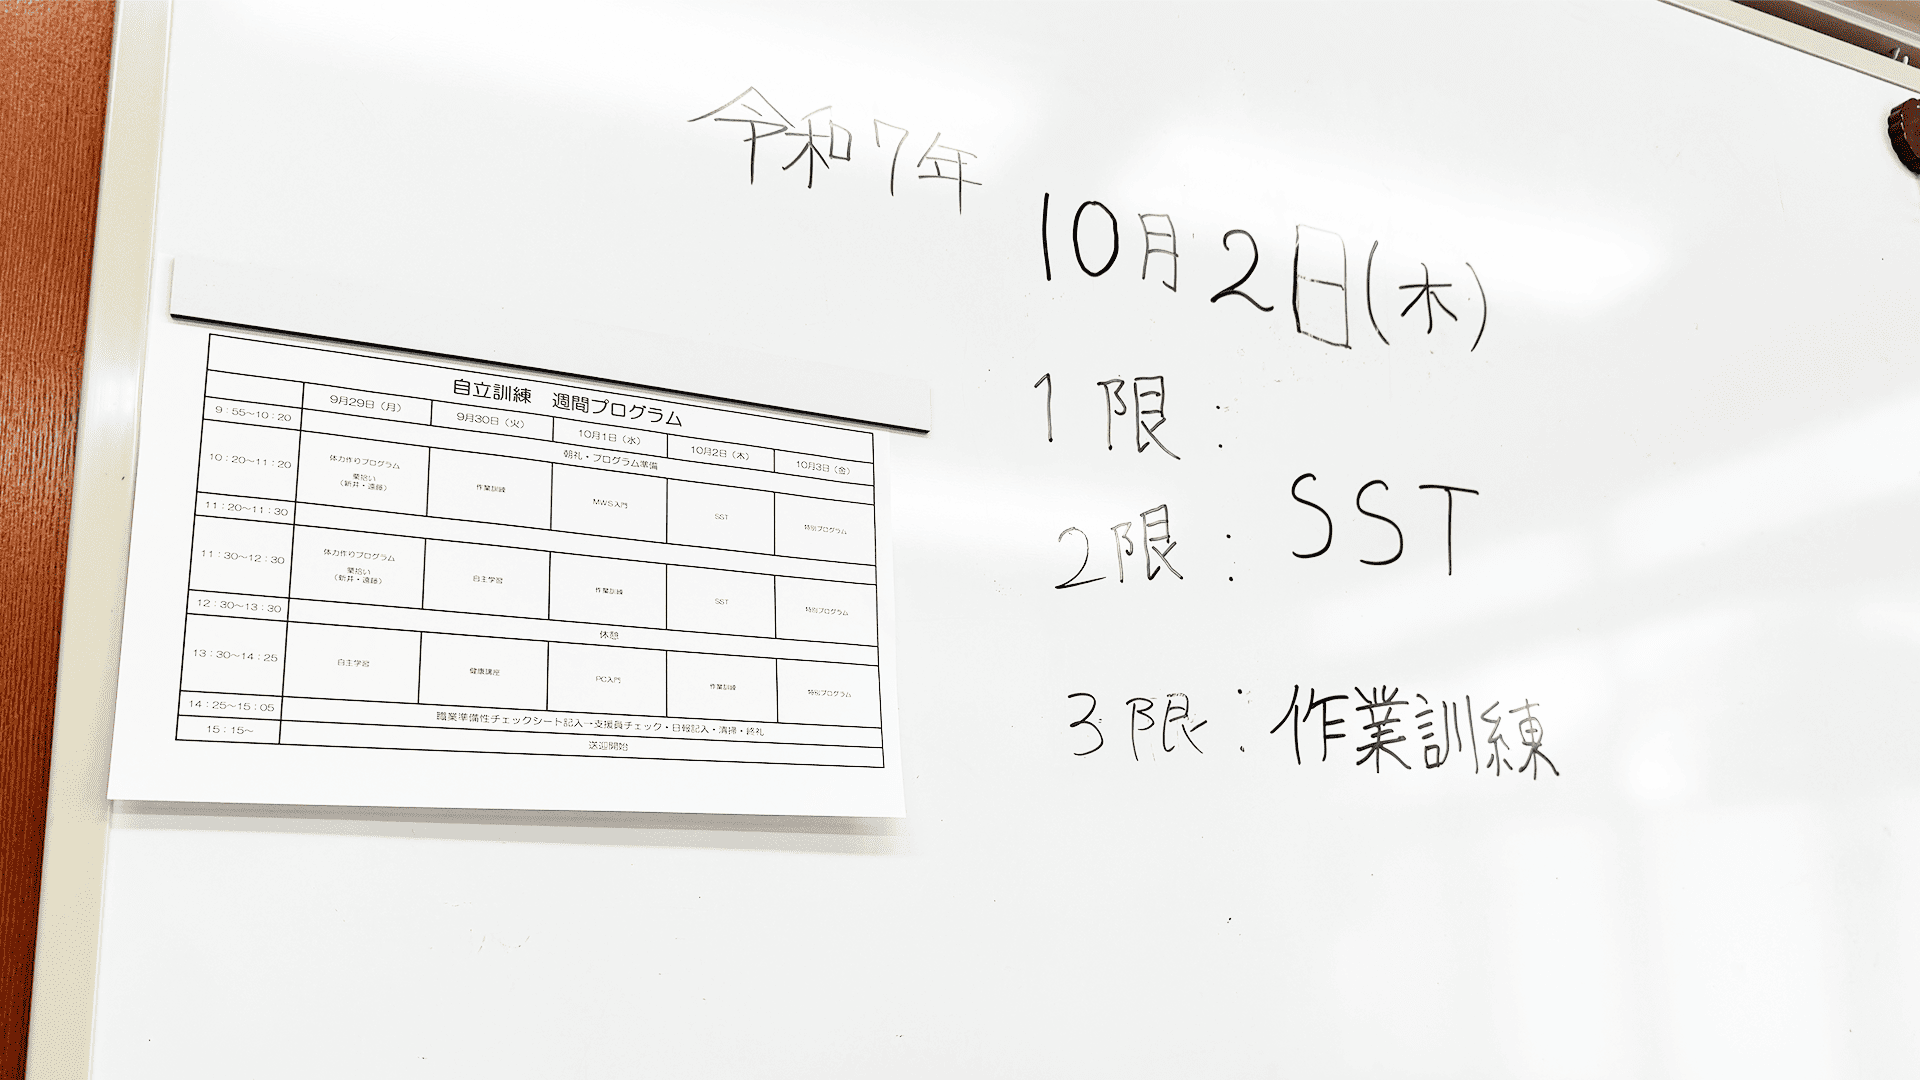 令和7年
10月2日(木)
1限:
SST
2限:
3限:作業訓練
自立訓練 週間プログラム
9月29日(月) 9月30日(火) 10月1日(水) 10月2日(木) 10月3日(金)
9:55~10:20 朝礼・プログラム準備
10:20~11:20 体力作りプログラム 作業訓練 MWS入門 SST 特別プログラム
栗拾い
(新井・遠藤)
11:20~11:30
11:30~12:30 体力作りプログラム 自主学習 作業訓練 SST 特別プログラム
栗拾い
(新井・遠藤)
12:30~13:30 休憩
13:30~14:25 自主学習 健康講座 PC入門 作業訓練 特別プログラム
14:25~15:05 職業準備性チェックシート記入→支援員チェック・日報記入・清掃・終礼
15:15~ 送迎開始